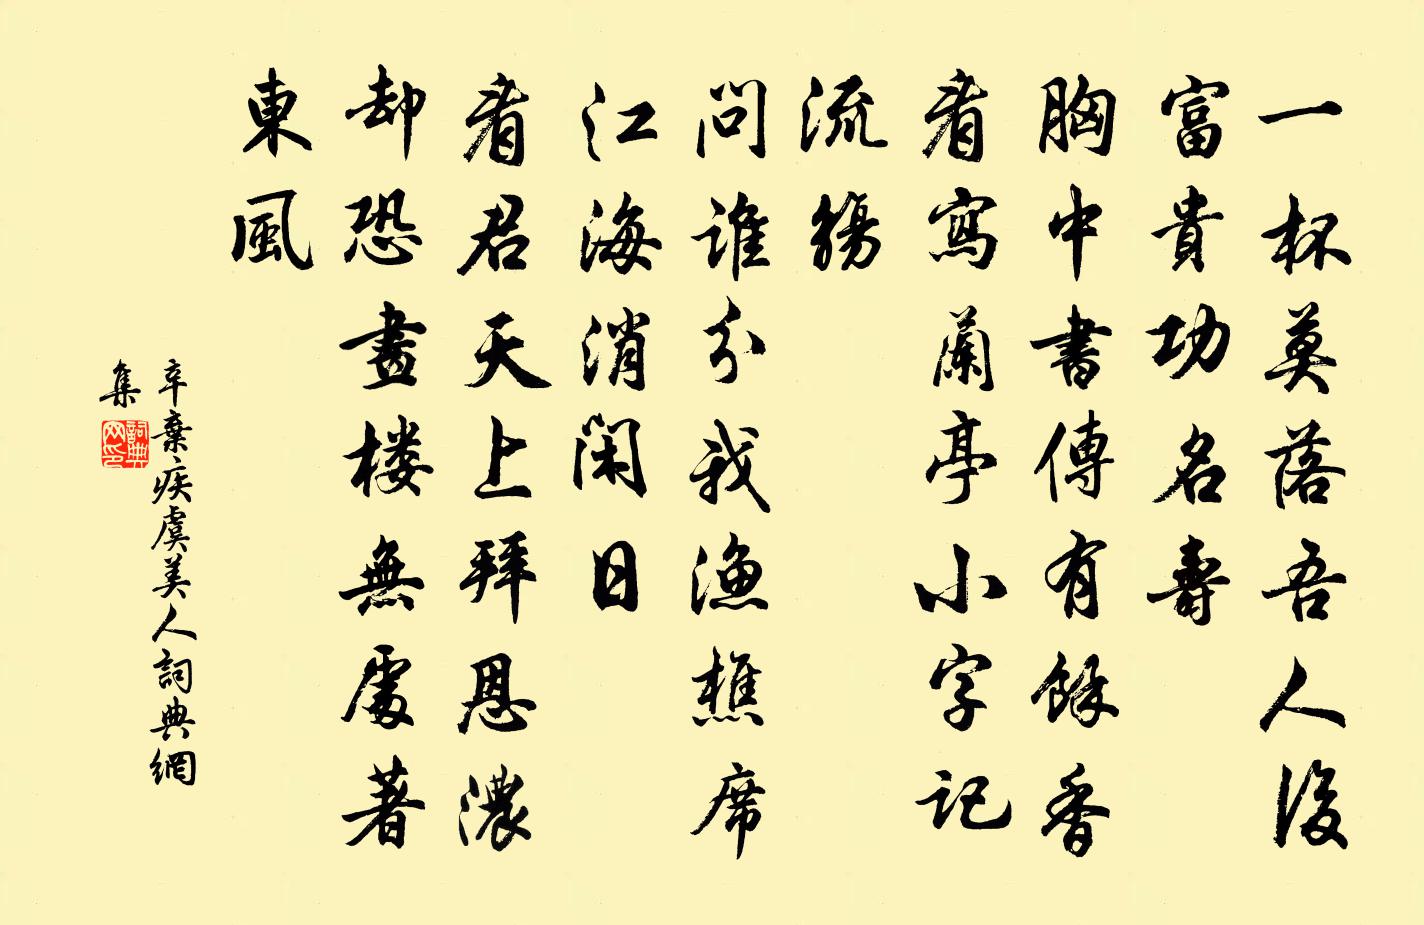 一杯莫落吾人後
富貴功名壽
胸中書傳有餘香
看寫蘭亭小字記
流觴
問誰分我漁樵席
江海消閑日
看君天上拜恩濃
却恐畫楼無處著
東風
辛棄疾虞美人詞典網
集
詞典网印